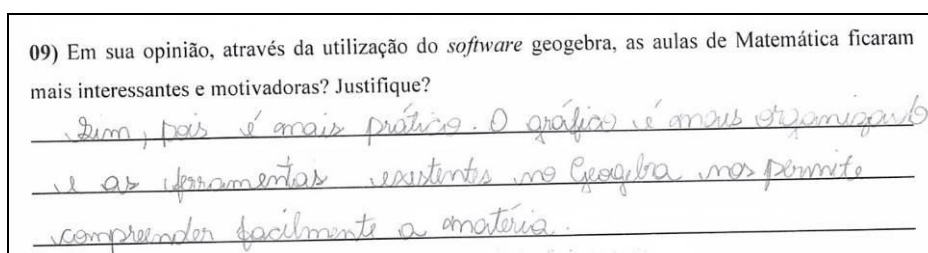 09) Em sua opinião, através da utilização do software geogebra, as aulas de Matemática ficaram
mais interessantes e motivadoras? Justifique?
Sim, pois é mais prático. O gráfico é mais organizado
e as ferramentas existentes no Geogebra nos permite
compreender facilmente a matéria.